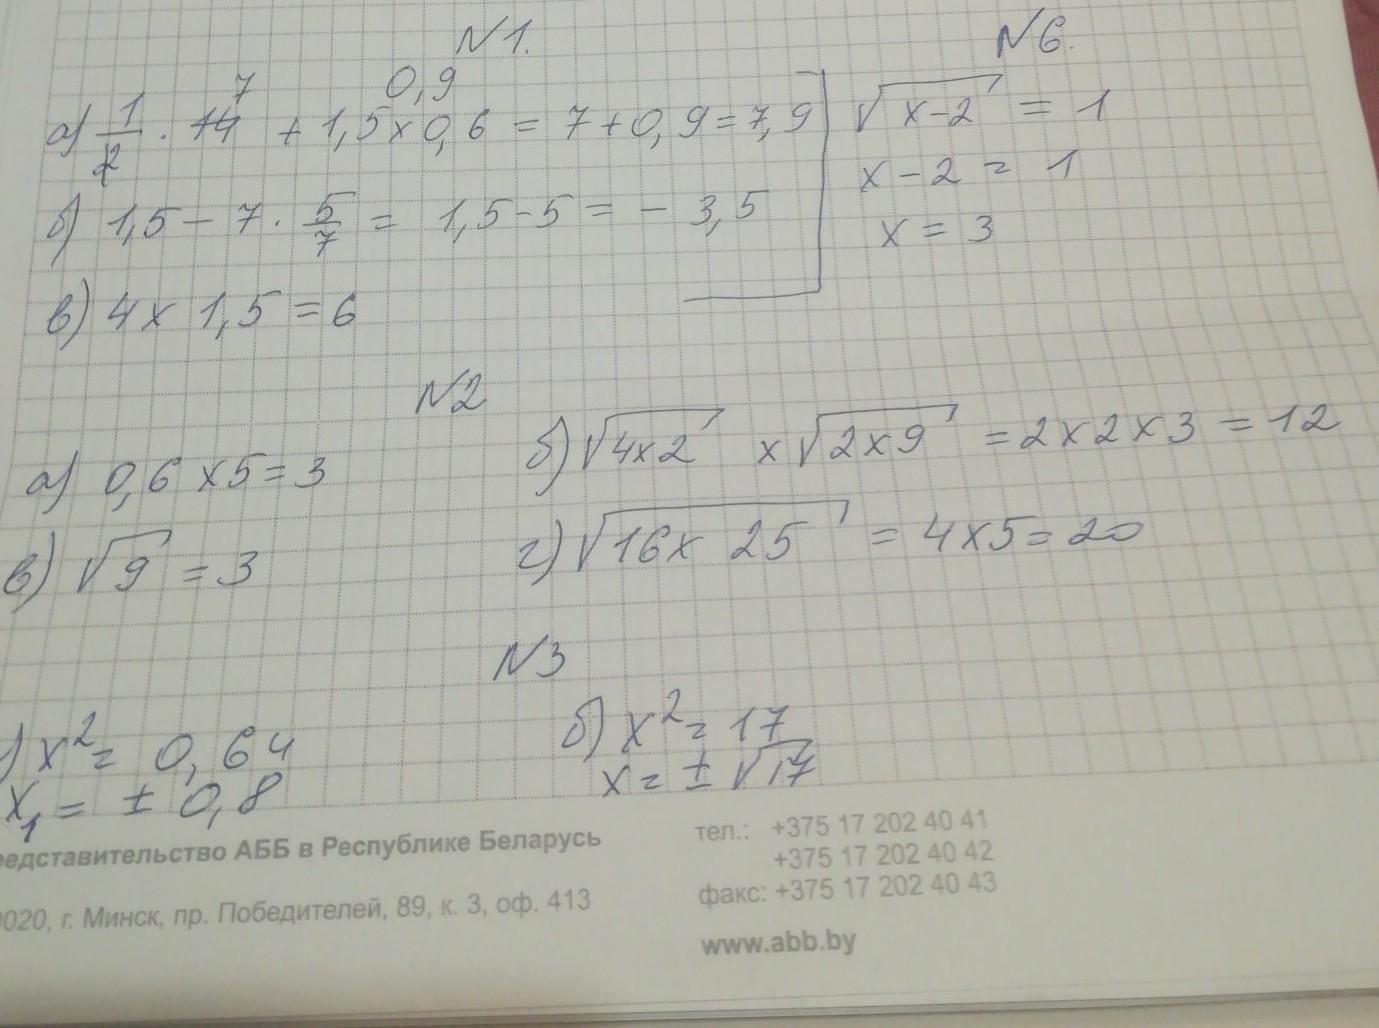 N1.
7 0,9
а) 1/2 · 14 + 1,5 x 0,6 = 7 + 0,9 = 7,9
б) 1,5 - 7 · 5/7 = 1,5 - 5 = - 3,5
в) 4 x 1,5 = 6
N6.
√x-2 = 1
x - 2 = 1
x = 3
N2
а) 0,6 x 5 = 3
б) √4x2 x √2x9 = 2x2x3 = 12
в) √9 = 3
г) √16x 25 = 4x5 = 20
N3
) x² = 0,64
x₁ = ± 0,8
б) x² = 17
x = ± √17
редставительство АББ в Республике Беларусь
0020, г. Минск, пр. Победителей, 89, к. 3, оф. 413
тел.: +375 17 202 40 41
+375 17 202 40 42
факс: +375 17 202 40 43
www.abb.by